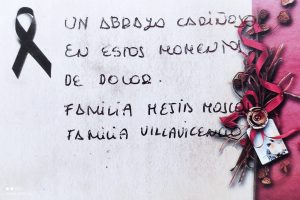 UN ABRAZO CARIÑOSO
EN ESTOS MOMENTOS
DE DOLOR.
FAMILIA MEJIA
FAMILIA VILLAVICENCIO